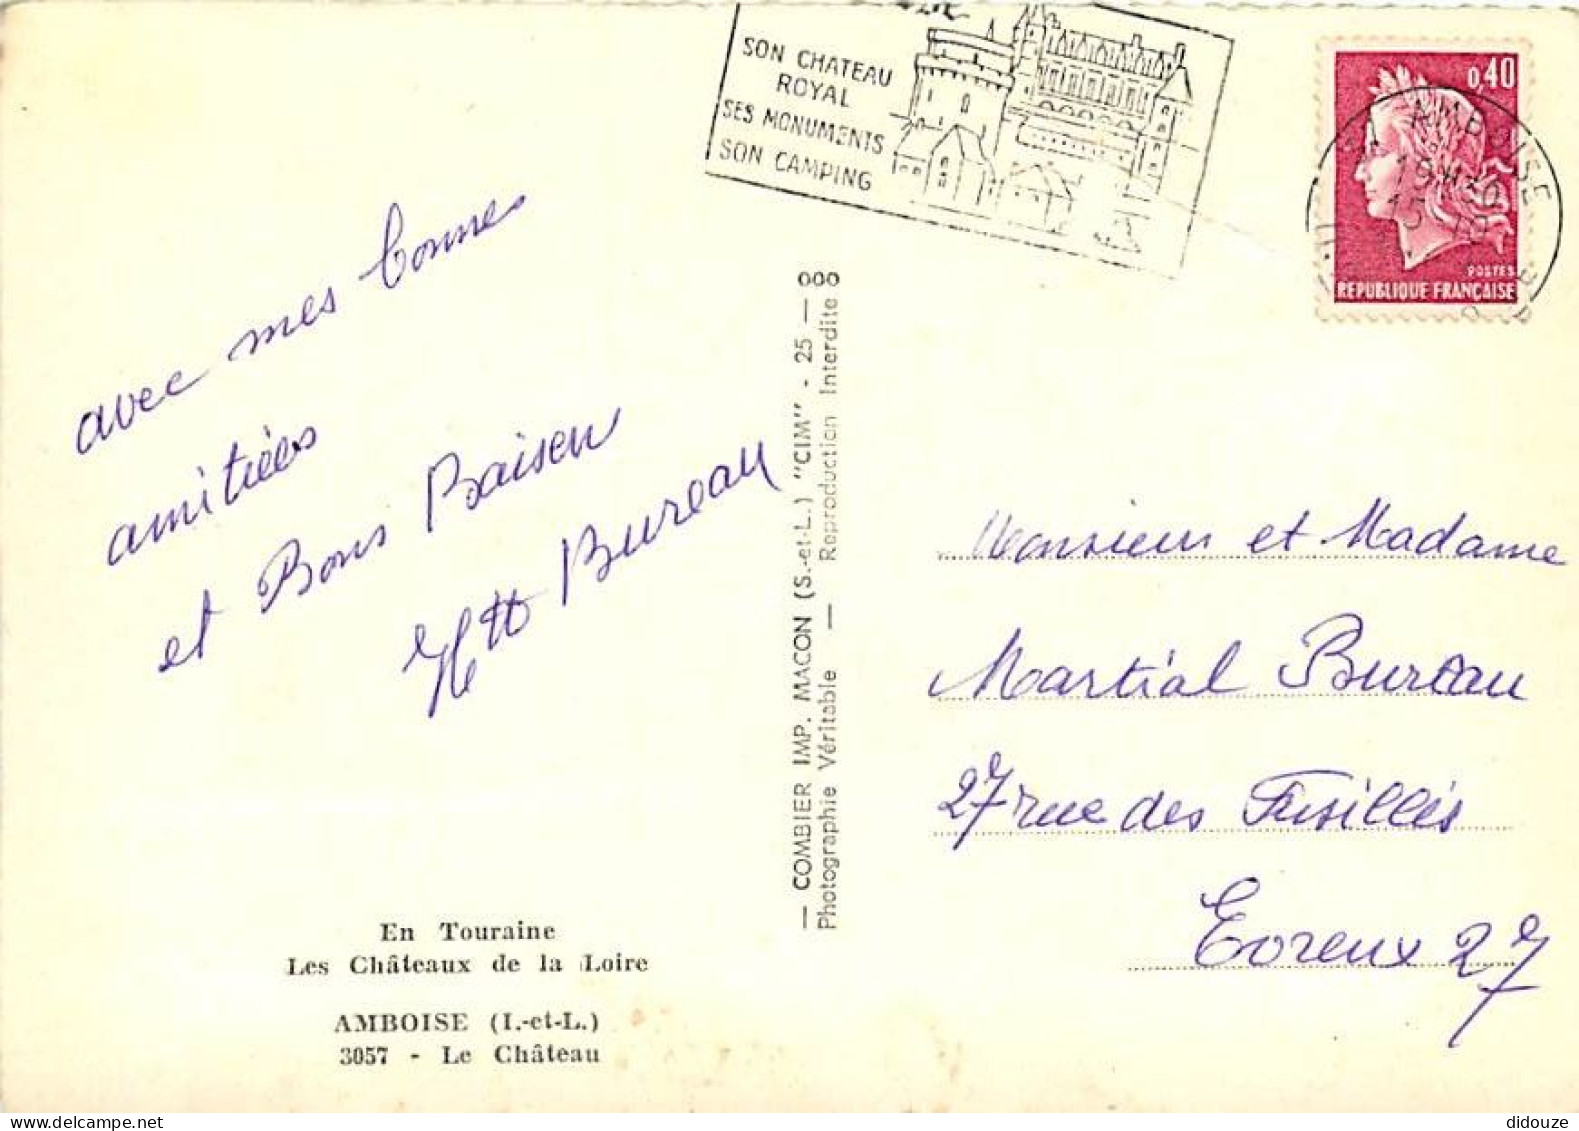 SON CHATEAU
ROYAL
SES MONUMENTS
SON CAMPING
0,40
AMBOISE
POSTES
REPUBLIQUE FRANÇAISE
avec mes bonnes
amitiées
et Bons Baisers
Bureau
— COMBIER IMP. MACON (S.-et-L.) "CIM" - 25 — 000
Photographie Véritable — Reproduction Interdite
Monsieur et Madame
Martial Bureau
27 rue des Fusillés
Evreux 27
En Touraine
Les Châteaux de la Loire
AMBOISE (I.-et-L.)
3057 - Le Château
didouze